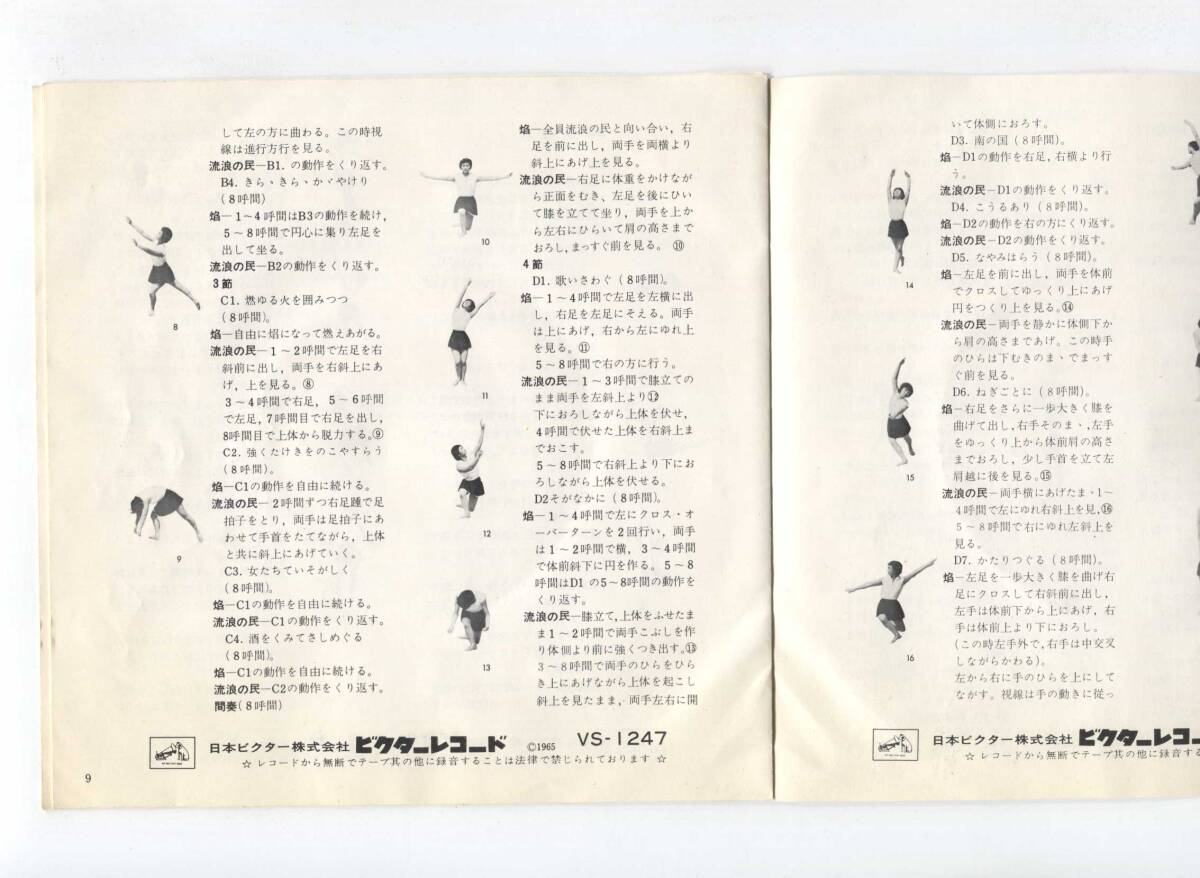 して左の方に曲わる。この時視
線は進行方行を見る。
流浪の民—B1. の動作をくり返す。
B4. きら、きら、かゞやけり
(8呼間)
焰—1〜4呼間はB3の動作を続け,
5〜8呼間で円心に集り左足を
出して坐る。
流浪の民—B2の動作をくり返す。
3節
C1. 燃ゆる火を囲みつつ
(8呼間)。
焰—自由に焰になって燃えあがる。
流浪の民—1〜2呼間で左足を右
斜前に出し, 両手を右斜上にあ
げ, 上を見る。⑧
3〜4呼間で右足, 5〜6呼間
で左足, 7呼間目で右足を出し,
8呼間目で上体から脱力する。⑨
C2. 強くたけきをのこやすらう
(8呼間)。
焰—C1の動作を自由に続ける。
流浪の民—2呼間ずつ右足踵で足
拍子をとり, 両手は足拍子にあ
わせて手首をたてながら, 上体
と共に斜上にあげていく。
C3. 女たちていそがしく
(8呼間)。
焰—C1の動作を自由に続ける。
流浪の民—C1の動作をくり返す。
C4. 酒をくみてさしめぐる
(8呼間)。
焰—C1の動作を自由に続ける。
流浪の民—C2の動作をくり返す。
間奏(8呼間)
8
9
10
11
12
13
焰—全員流浪の民と向い合い, 右
足を前に出し, 両手を両横より
斜上にあげ上を見る。
流浪の民—右足に体重をかけなが
ら正面をむき、左足を後にひい
て膝を立てて坐り, 両手を上か
ら左右にひらいて肩の高さまで
おろし, まっすぐ前を見る。⑩
4節
D1. 歌いさわぐ (8呼間)。
焰—1〜4呼間で左足を左横に出
し, 右足を左足にそえる。両手
は上にあげ, 右から左にゆれ上
を見る。⑪
5〜8呼間で右の方に行う。
流浪の民—1〜3呼間で膝立ての
まま両手を左斜上より⑫
下におろしながら上体を伏せ,
4呼間で伏せた上体を右斜上ま
でおこす。
5〜8呼間で右斜上より下にお
ろしながら上体を伏せる。
D2そがなかに (8呼間)。
焰—1〜4呼間で左にクロス・オ
ーバーターンを2回行い, 両手
は1〜2呼間で横, 3〜4呼間
で体前斜下に円を作る。5〜8
呼間はD1の5〜8呼間の動作を
くり返す。
流浪の民—膝立て, 上体をふせたま
ま1〜2呼間で両手こぶしを作
り体側より前に強くつき出す。⑬
3〜8呼間で両手のひらをひら
き上にあげながら上体を起こし
斜上を見たまま, 両手左右に開
日本ビクター株式会社 ビクターレコード ©1965 VS-1247
☆ レコードから無断でテープ其の他に録音することは法律で禁じられております ☆
9
いて体側におろす。
D3. 南の国 (8呼間)。
焰—D1の動作を右足, 右横より行
う。
流浪の民—D1の動作をくり返す。
D4. こうるあり (8呼間)。
焰—D2の動作を右の方にくり返す。
流浪の民—D2の動作をくり返す。
D5. なやみはらう (8呼間)。
焰—左足を前に出し, 両手を体前
でクロスしてゆっくり上にあげ
円をつくり上を見る。⑭
流浪の民—両手を静かに体側下か
ら肩の高さまであげ。この時手
のひらは下むきのまゝでまっす
ぐ前を見る。
D6. ねぎごとに (8呼間)。
焰—右足をさらに一歩大きく膝を
曲げて出し, 右手そのまゝ, 左手
をゆっくり上から体前肩の高さ
までおろし, 少し手首を立て左
肩越に後を見る。⑮
流浪の民—両手横にあげたまゝ1〜
4呼間で左にゆれ右斜上を見, ⑯
5〜8呼間で右にゆれ左斜上を
見る。
D7. かたりつぐる (8呼間)。
焰—左足を一歩大きく膝を曲げ右
足にクロスして右斜前に出し,
左手は体前下から上にあげ, 右
手は体前上より下におろし。
(この時左手外で, 右手は中交叉
しながらかわる)。
左から右に手のひらを上にして
ながす。視線は手の動きに従っ
14
15
16
日本ビクター株式会社 ビクターレコ
☆ レコードから無断でテープ其の他に録音する